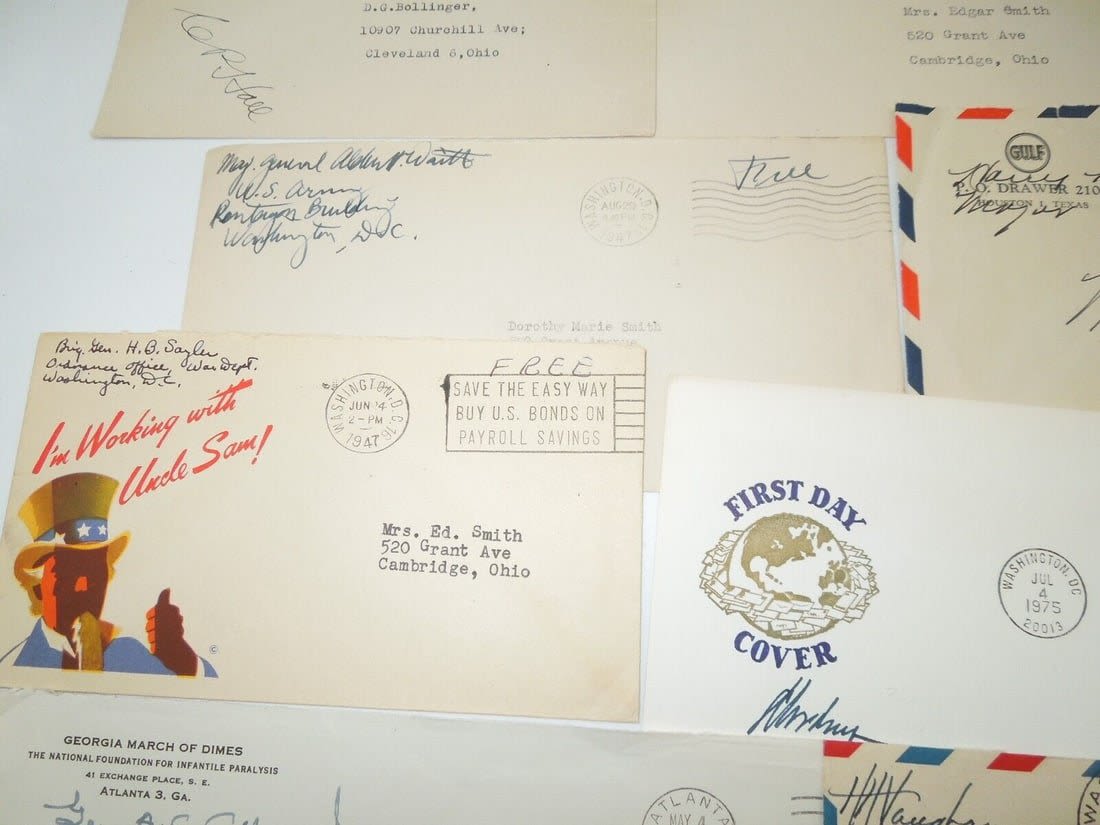 D.G.Bollinger,
10907 Churchill Ave;
Cleveland 6,Ohio
Mrs. Edgar Smith
520 Grant Ave
Cambridge, Ohio
Maj. General Alden H. Waitt
U.S. Army
Pentagon Building
Washington, D.C.
WASHINGTON, D.C.
AUG 29
1947
Free
GULF
P. O. DRAWER 210
HOUSTON 1, TEXAS
Dorothy Marie Smith
520 Grant Avenue
Brig. Gen. H. B. Sayler
Ordnance Office, War Dept.
Washington, D.C.
I'm Working with
Uncle Sam!
©
WASHINGTON, D.C.
JUN 24
2-PM
1947
FREE
SAVE THE EASY WAY
BUY U.S. BONDS ON
PAYROLL SAVINGS
Mrs. Ed. Smith
520 Grant Ave
Cambridge, Ohio
FIRST DAY
COVER
WASHINGTON, DC
JUL
4
1975
20013
GEORGIA MARCH OF DIMES
THE NATIONAL FOUNDATION FOR INFANTILE PARALYSIS
41 EXCHANGE PLACE, S. E.
ATLANTA 3, GA.
ATLANTA
MAY 4
WA